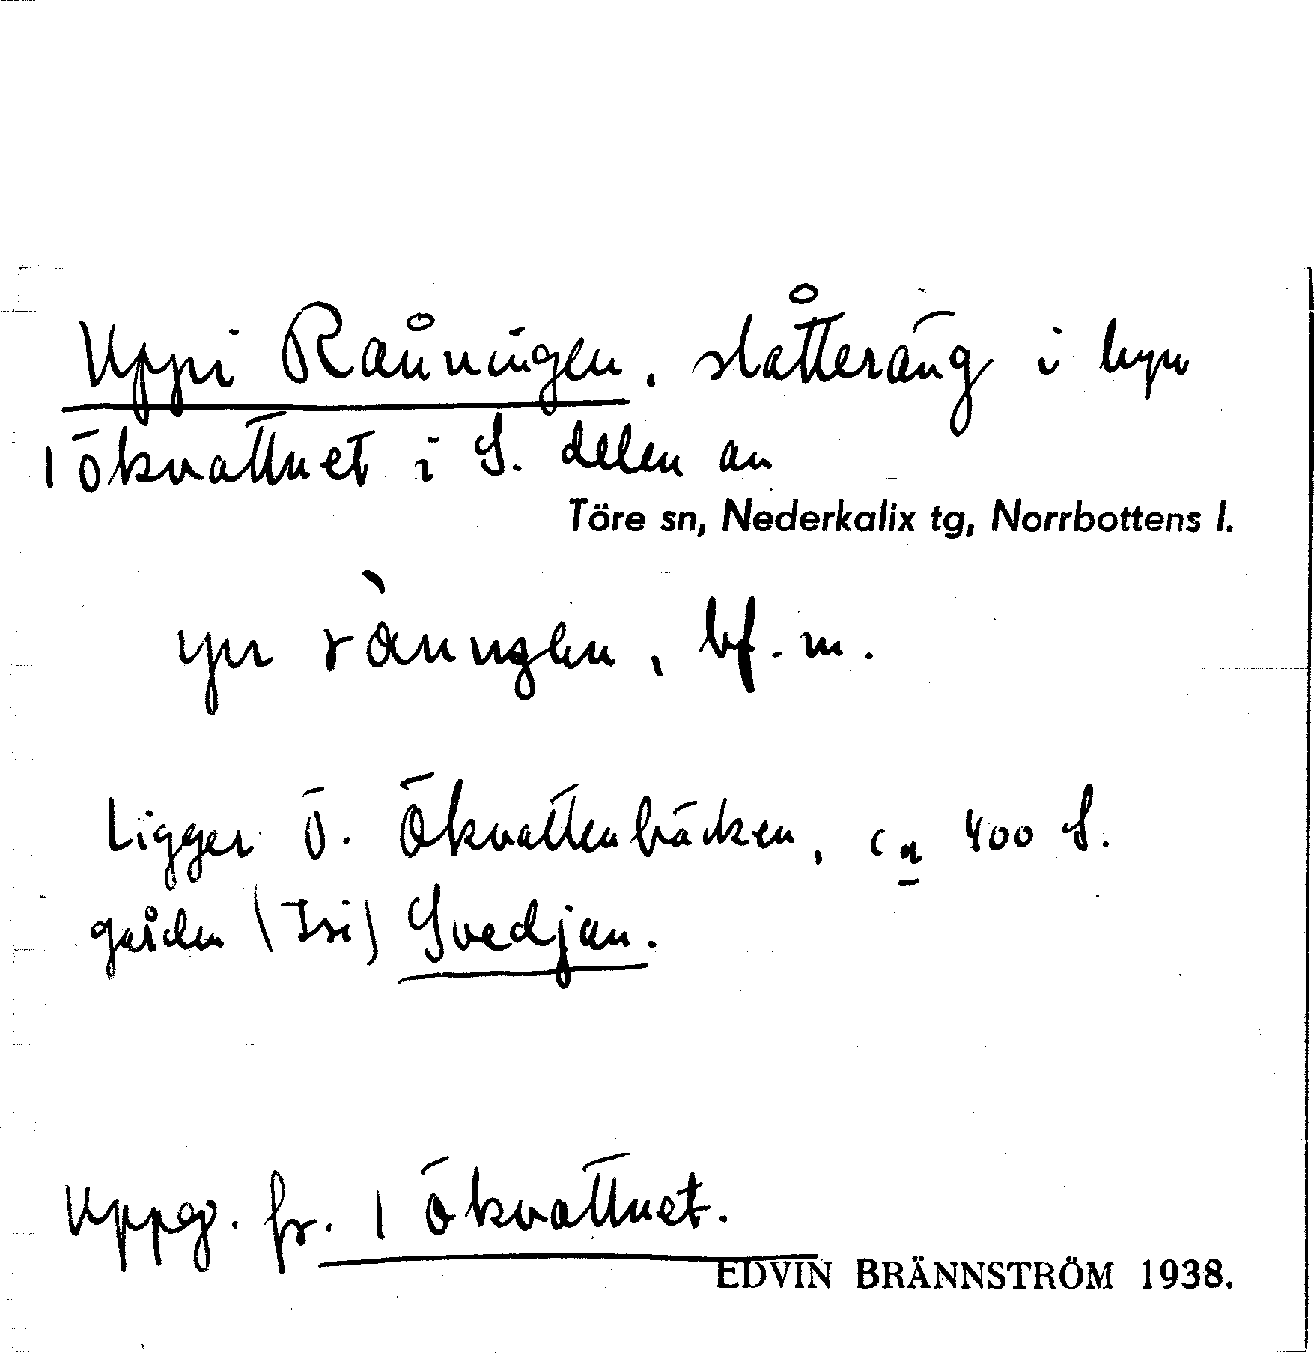 Uppi Råningen, slåtteräng i byn
1 Ökvattnet i S. delen av
Töre sn, Nederkalix tg, Norrbottens l.
bf. m.
Ligger Ö. Ökvattenbäcken, ca 400 S.
gården (Isi) Svedjan.
Uppg. fr. 1 Ökvattnet.
EDVIN BRÄNNSTRÖM 1938.